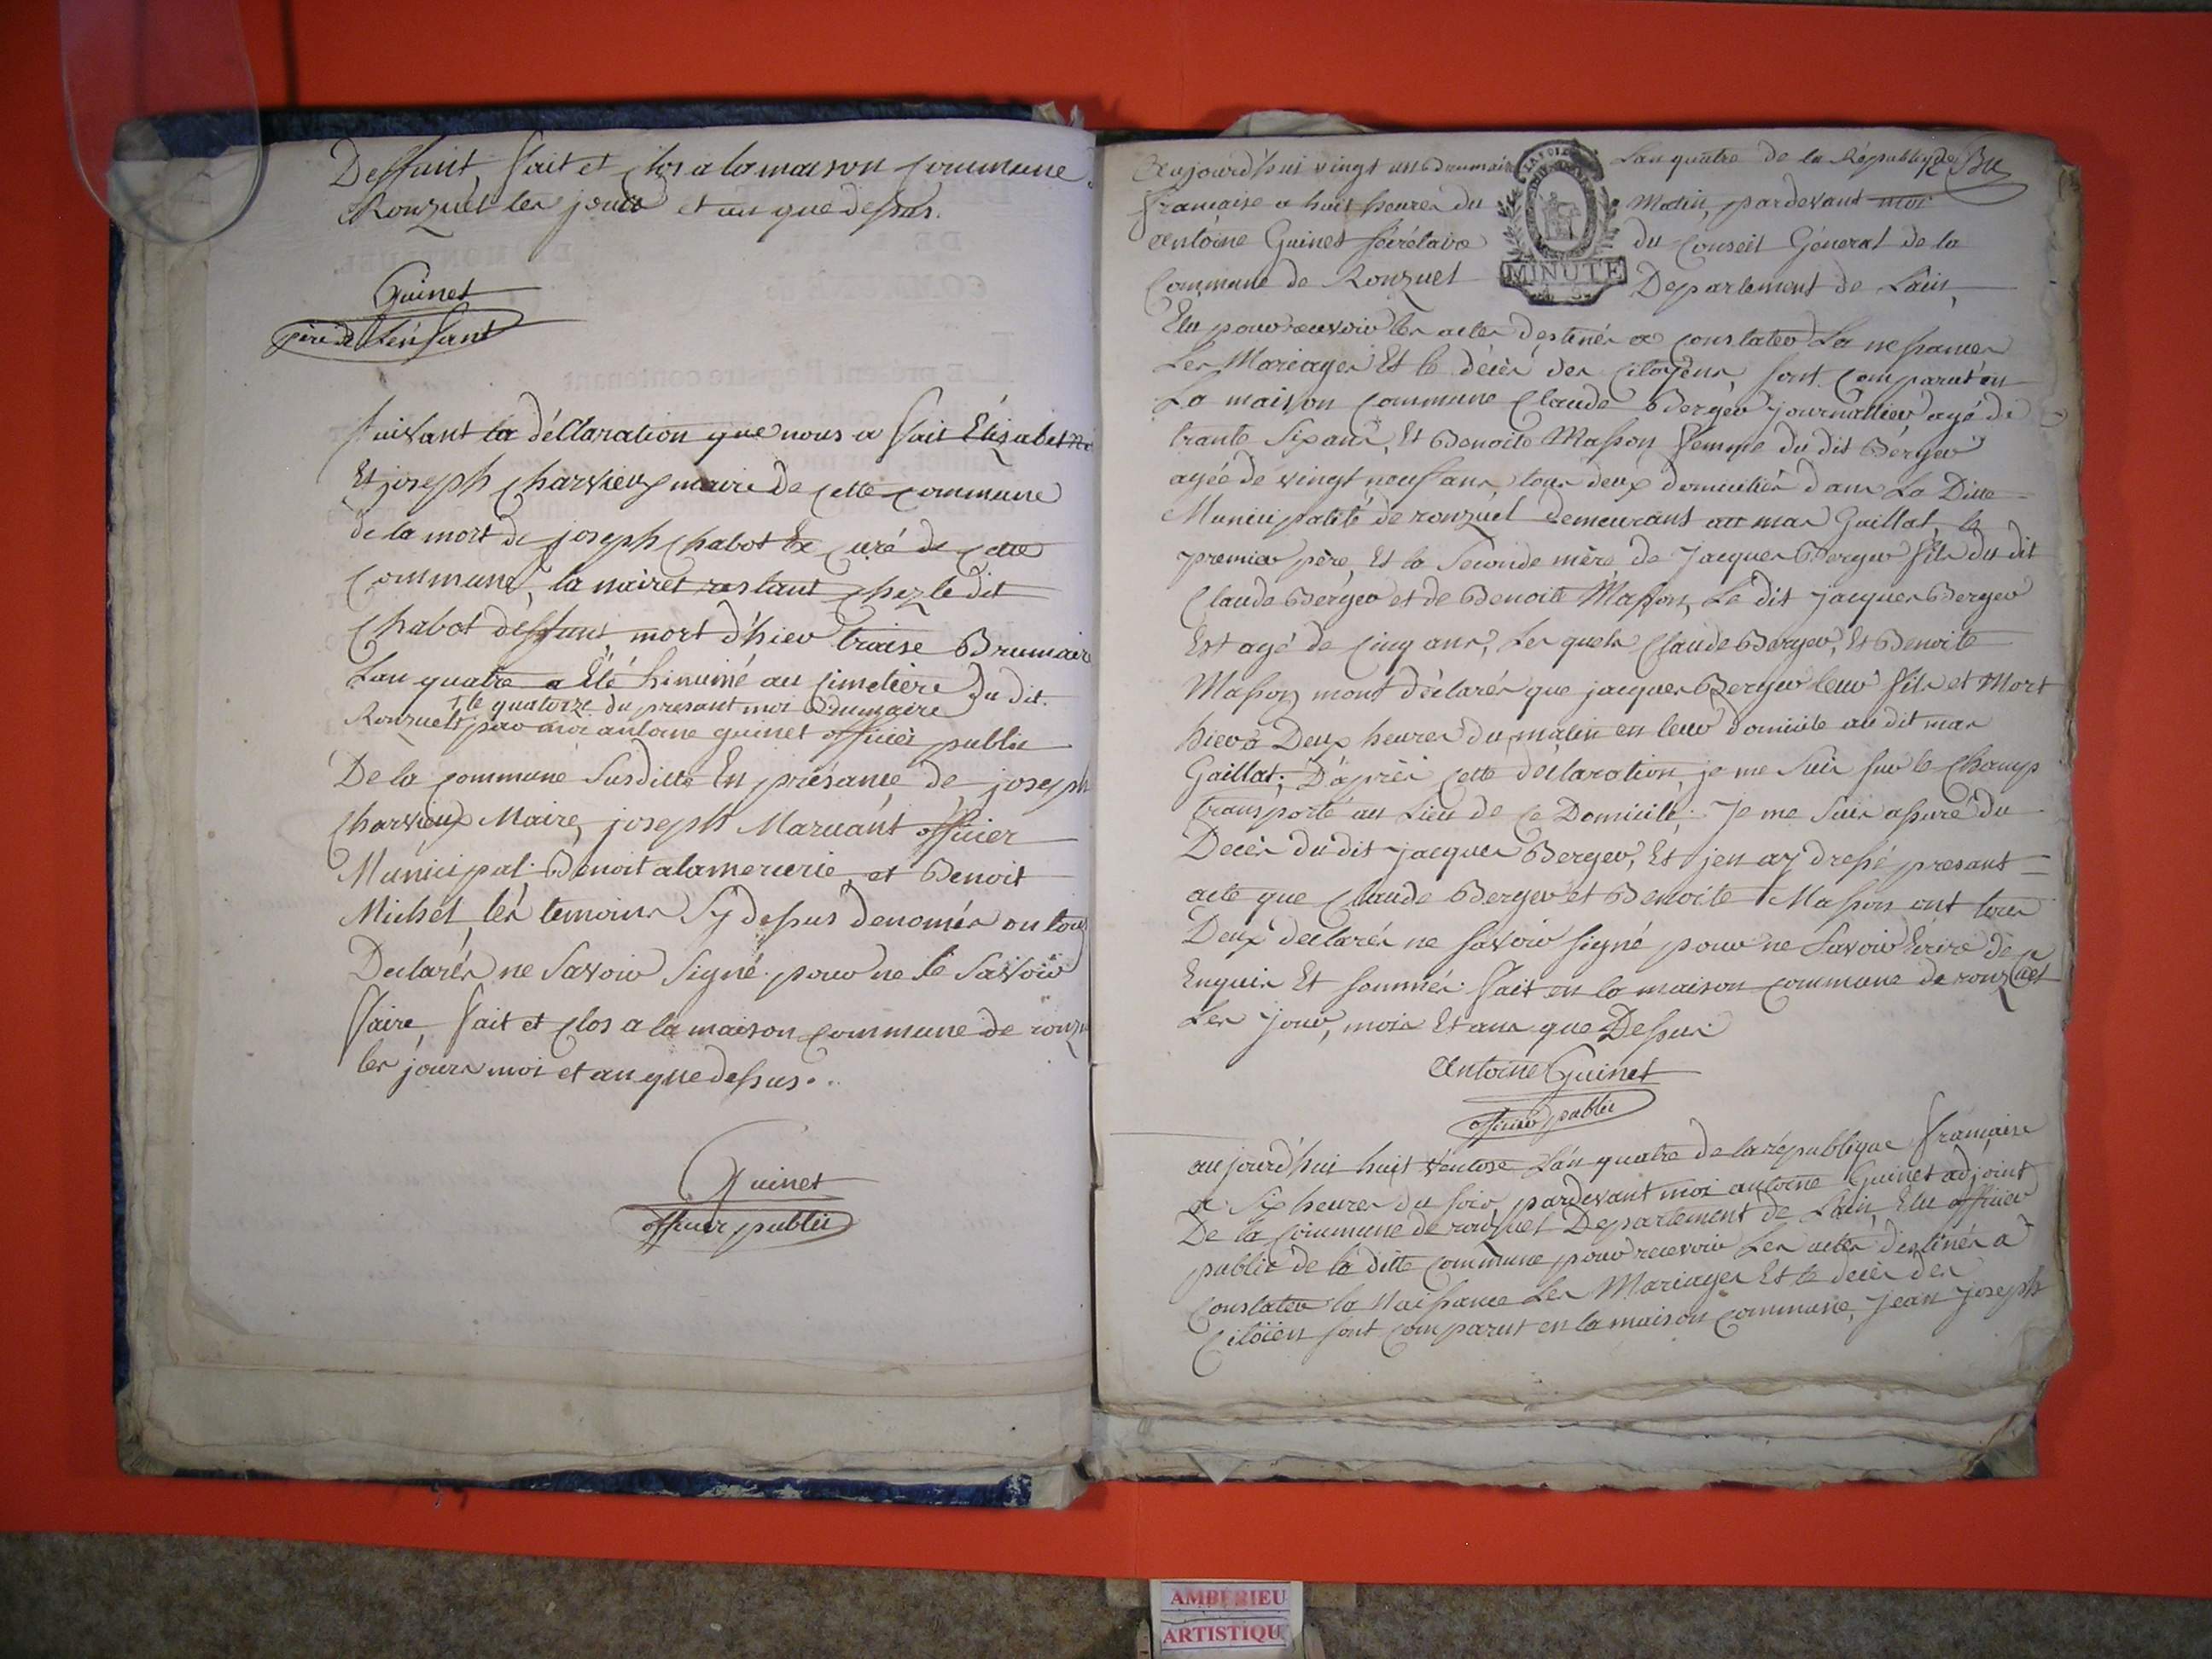 Deffunt, fait et clos a la maison commune
Ronzuel les jours et an que dessus.
Guinet
père de l'enfant
Suivant la déclaration que nous a fait Élizabet
Et joseph charvieux maire de cette commune
de la mort de joseph chabot Ex curé de cette
commune, la nairet restant chez le dit
Chabot deffunt mort d'hier traise Brumaire
Lan quatre a Eté hinumé au cimetière du dit.
le quatorze du presant moi Brumaire
Ronzuel par moi antoine guinet officier public
De la commune Susditte En présance de joseph
Charvieux Maire, joseph Maruant officier
Municipal Benoit alamercerie et Benoit
Michel, lés temoins Sy dessus denomés on tous
Declarés ne Savoir Signé pour ne le Savoir
ffaire fait et clos a la maison commune de ronzu
les jours moi et an que dessus.
Guinet
officier public
Aujourd'hui vingt un Brumaire Lan quatre de la République
française a huit heures du Matin, pardevant moi
Antoine Guinet Sécrétaire du Conseil Géneral de la
Commune de Ronzuel Departement de Lain,
MINUTE
Elu pour recevoir les actes destinés a constater La nessances
Les Mariages Et le décès des citoyens, sont comparut en
La maison commune Claude Berger journallier, agé de
trante six ans, Et Benoite Masson femme du dit Berger
agée de vingt neuf ans, tous deux domiciliés dans La Ditte
Municipalité de ronzuel demeurans au mas Gaillat, le
premier père, Et la Seconde mère de Jacques Berger fils du dit
Claude Berger et de Benoite Masson, Le dit jacques Berger
Est agé de cinq ans, Les quels Claude Berger, Et Benoite
Masson mont déclarés que jacques Berger leur fils et Mort
hier a Deux heures du matin en leur domicile au dit mas
Gaillat; D'après cette déclaration je me Suis sur le champ
transporté au Lieu de ce Domicile; Je me Suis assuré du
Décès du dit jacques Berger, Et jen ay dressé presant
acte que Claude Berger et Benoite Masson ont tous
Deux declarés ne savoir signé pour ne Savoir Ecrire de ce
Enquis Et sommés. fait en la maison commune de ronzuel
Les Jour, mois Et ans que Dessus.
Antoine Guinet
officier public
aujourd'hui huit Ventose L'an quatre de la république française
a Six heures du soir, pardevant moi antoine Guinet adjoint
De la commune de ronzuel Departement de Lain, Elu officier
public de la ditte commune pour recevoir Les actes destinés a
Constater la naissance Les Mariages Et le décès des
Citoïens sont comparut en la maison commune, Jean Joseph
AMBERIEU
ARTISTIQU